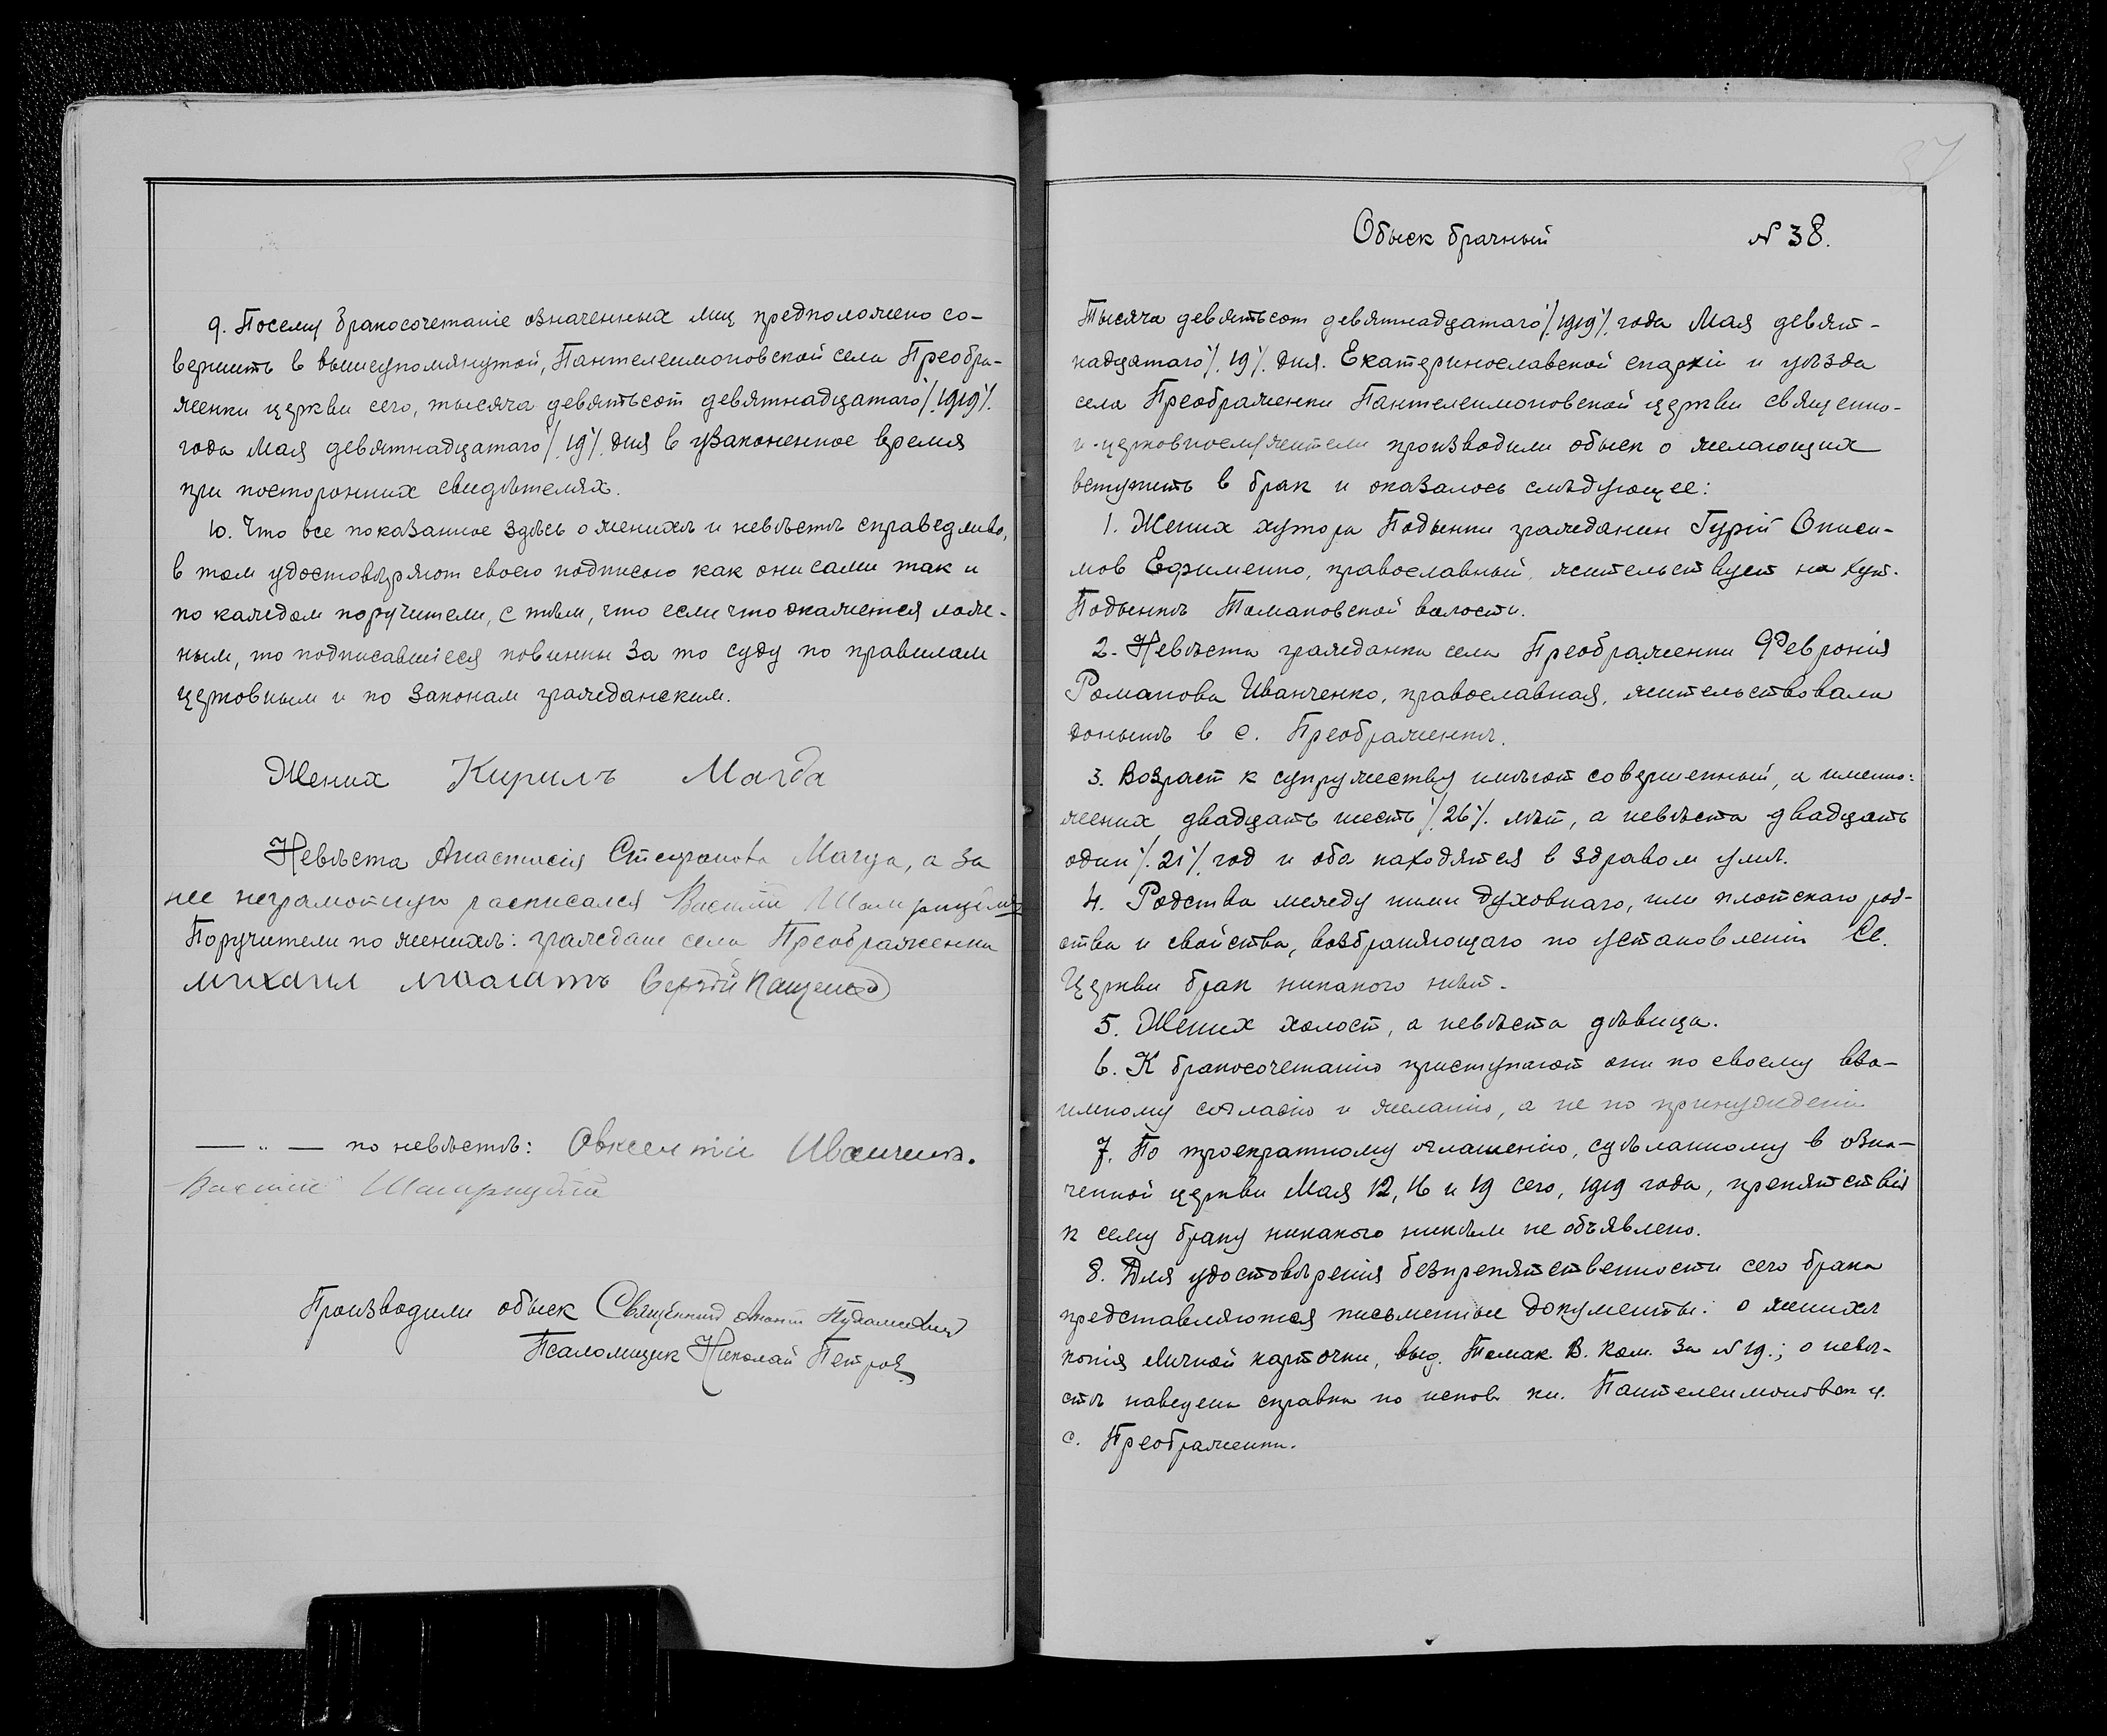 9. Посему бракосочетаніе означенных лиц предположено со-
вершить в вышеупомянутой, Пантелеимоновской села Преобра-
женки церкви сего, тысяча девятьсот девятнадцатаго /.1919/.
года Мая девятнадцатаго /.19/. дня в узаконенное время
при посторонних свидѣтелях.
10. Что все показанное здѣсь о женихѣ и невѣстѣ справедливо,
в том удостовѣряют своею подписью как они сами так и
по каждом поручители, с тѣм, что если что окажется лож-
ным, то подписавшіеся повинны за то суду по правилам
церковным и по законам гражданским.
Жених Кирилъ Магда
Невѣста Анастасія Стефанова Магда, а за
нее неграмотную расписался Василій
Поручители по женихѣ: граждане села Преображенки
михаил Сергѣй Пащенко
— „ — по невѣстѣ: Овксентій Иванченко.
Василій
Производили обыск Священник
Псаломщик Николай Петров
37
Обыск брачный № 38.
Тысяча девятьсот девятнадцатаго /.1919/. года Мая девят-
надцатаго /.19/. дня. Екатеринославской епархіи и уѣзда
села Преображенки Пантелеимоновской церкви священно-
и-церковнослужители производили обыск о желающих
вступить в брак и оказалось слѣдующее:
1. Жених хутора Подынки гражданин Гурій Ониси-
мов Ефименко, православный, жительствует на хут.
Подынкѣ Томаковской волости.
2. Невѣста гражданка села Преображенки Феврония
Романова Иванченко, православная, жительствовала
донынѣ в с. Преображенкѣ.
3. Возраст к супружеству имѣют совершенный, а именно:
жених двадцать шесть /.26/. лѣт, а невѣста двадцать
один /.21/. год и оба находятся в здравом умѣ.
4. Родства между ними духовнаго, или плотскаго род-
ства и свойства, возбраняющаго по установленію Св.
Церкви брак никакого нѣт.
5. Жених холост, а невѣста дѣвица.
6. К бракосочетанію приступают они по своему вза-
имному согласію и желанію, а не по принужденію
7. По троекратному оглашенію, сдѣланному в озна-
ченной церкви Мая 12, 16 и 19 сего, 1919 года, препятствія
к сему браку никакого никѣм не объявлено.
8. Для удостовѣренія безпрепятственности сего брака
представляются письменные документы: о женихѣ
копія личной карточки, выд. Томак. В. Ком. за № 19.; о невѣ-
стѣ наведена справка по испов. кн. Пантелеимоновск ц.
с. Преображенки.